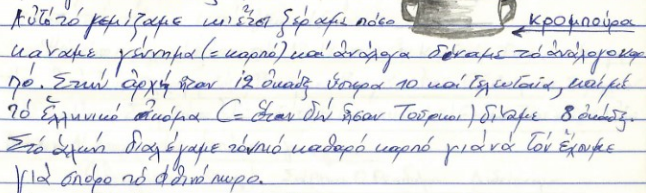 Αὐτό τό γεμίζαμε κι ἔτσι ξέραμε πόσο
κρομπούρα
κάναμε γέννημα (= καρπό) καί ἀνάλογα δίναμε τό ἀνάλογο καρ
πό. Στήν ἀρχή ἦταν 12 ὀκάδες ὕστερα 10 καί τελευταῖα, καί μέ
τό ἑλληνικό ἀκόμα (= ὅταν δέν ἦσαν Τοῦρκοι) δίναμε 8 ὀκάδες.
Στό ἁλώνι διαλέγαμε τόν πιό καθαρό καρπό γιά νά τόν ἔχουμε
γιά σπόρο τό φθινόπωρο.